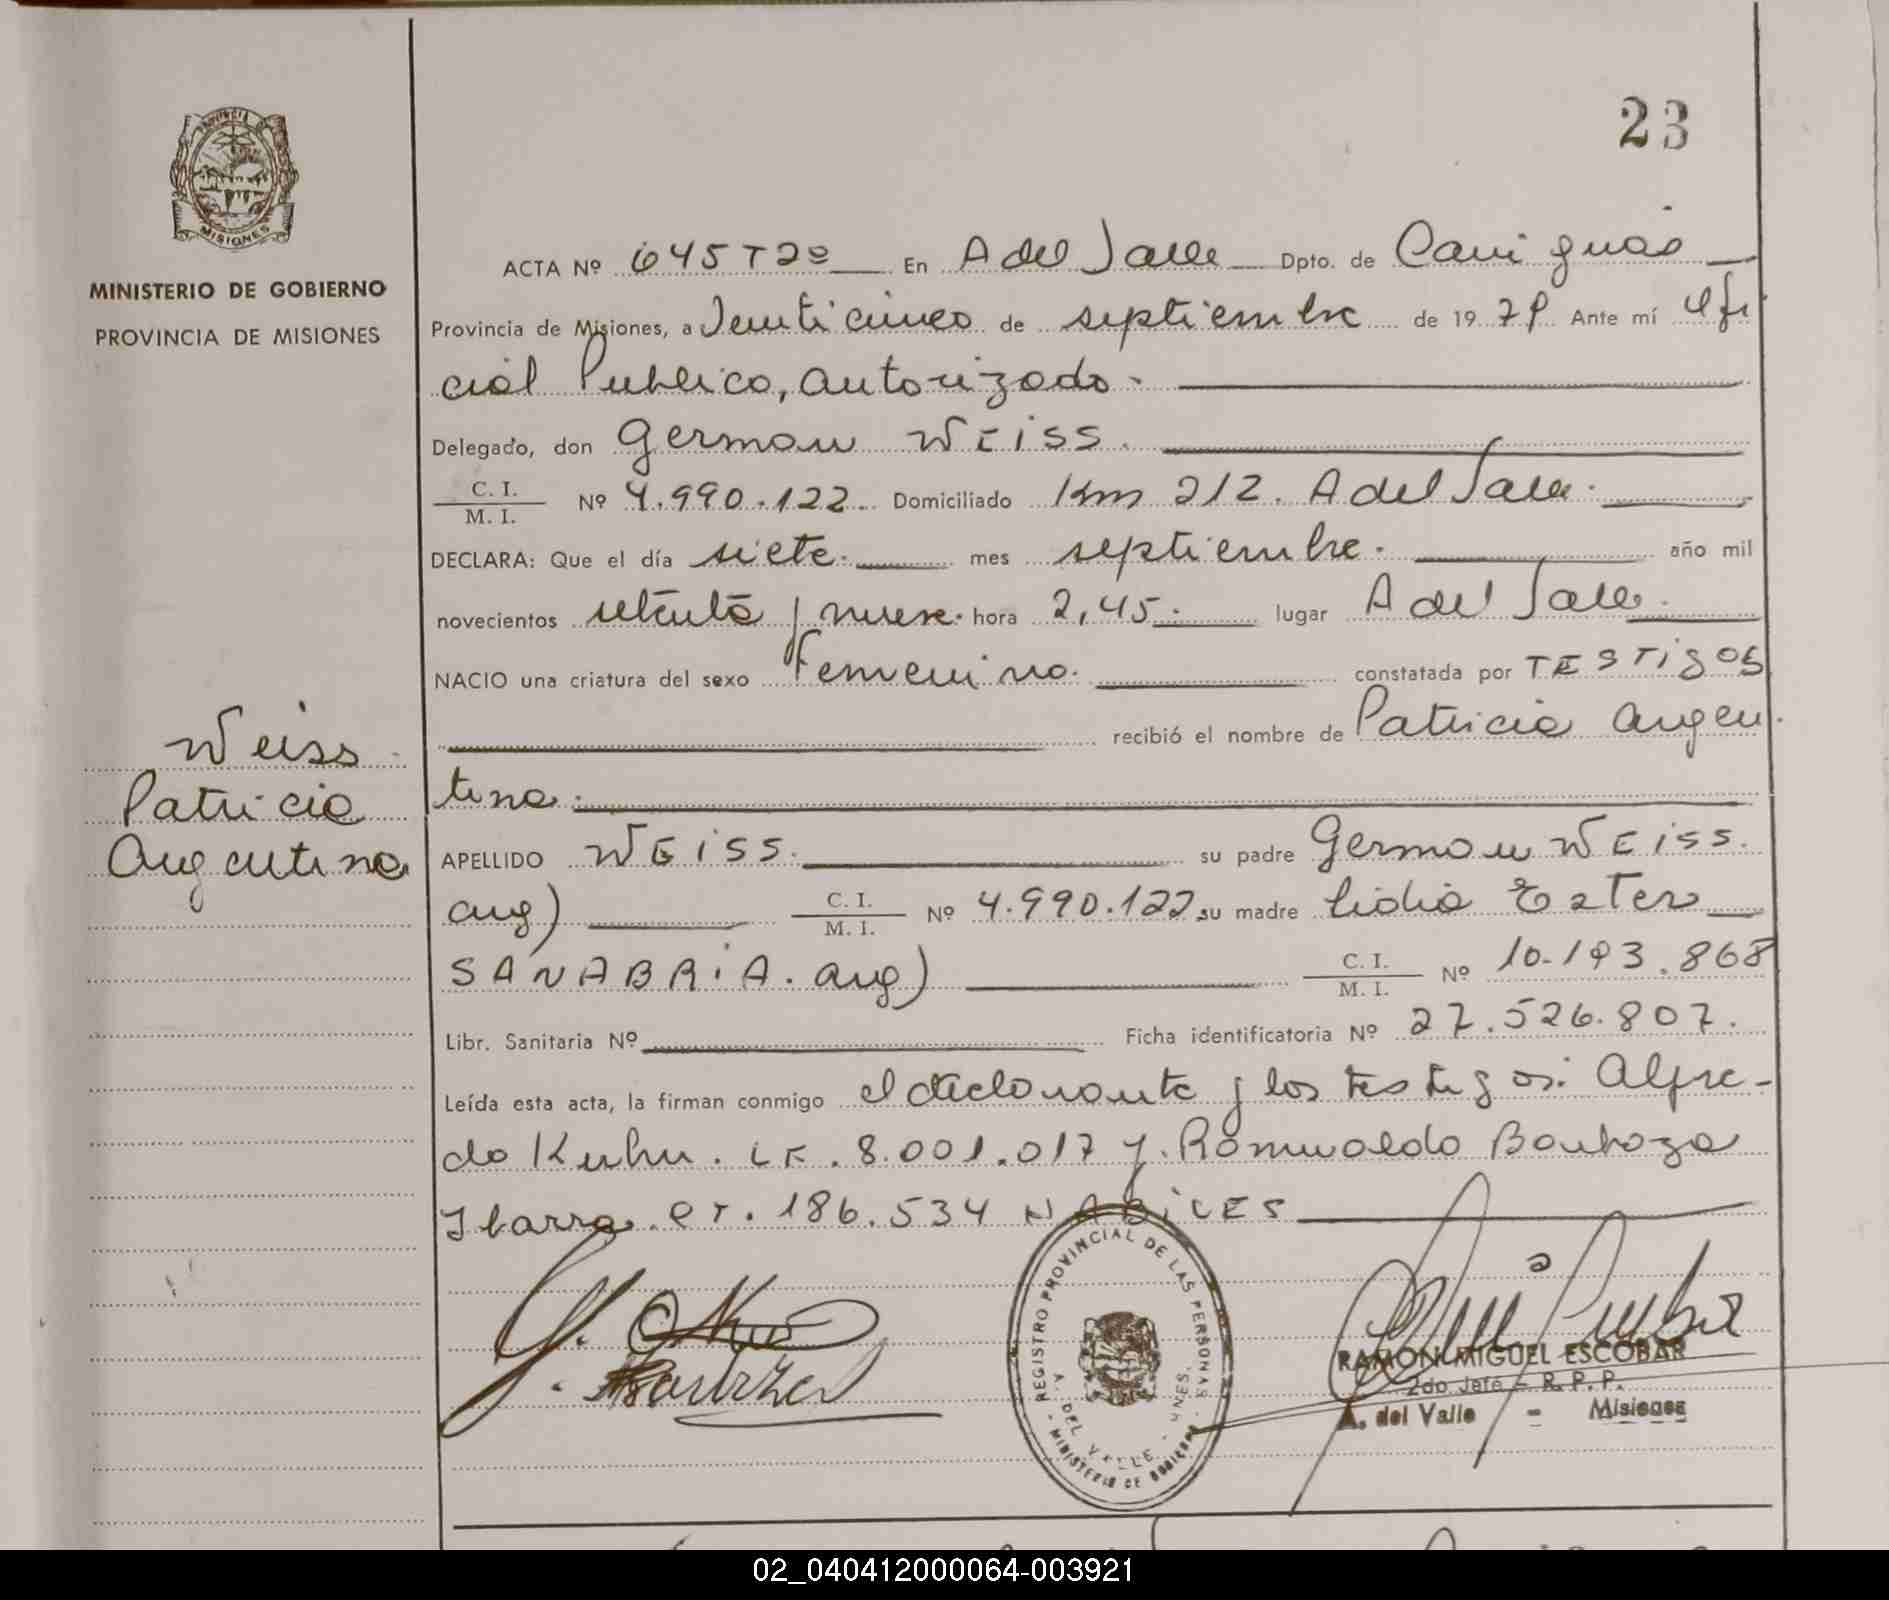 23
MINISTERIO DE GOBIERNO
PROVINCIA DE MISIONES
MISIONES
ACTA Nº 645 T 2º En A del Valle Dpto. de Cainguás
Provincia de Misiones, a Veinticinco de septiembre de 1979 Ante mí Ofi
cial Publico, autorizado.
Delegado, don German WEiSS.
C. I. / M. I. Nº 4.990.122. Domiciliado Km 212. A del Valle.
DECLARA: Que el día siete. mes septiembre. año mil
novecientos setenta y nueve. hora 2,45. lugar A del Valle.
NACIO una criatura del sexo Femenino. constatada por TESTigOS
recibió el nombre de Patricia Argen
tina.
Weiss
Patricia
Argentina
APELLIDO WEiSS. su padre German WEiSS.
arg) C. I. / M. I. Nº 4.990.122 su madre Lidia EzTer
SANABRiA. arg) C. I. / M. I. Nº 10.193.868
Libr. Sanitaria Nº Ficha identificatoria Nº 27.526.807.
Leída esta acta, la firman conmigo el declarante y los testigos: Alfre-
do Kuhn. LE. 8.001.017 y. Romualdo Barboza
Ibarra. 186.534 HABiLES
REGISTRO PROVINCIAL DE LAS PERSONAS
A. DEL VALLE - MNES.
MINISTERIO DE GOBIERNO
RAMON MIGUEL ESCOBAR
2do Jefe - R. P. P.
A. del Valle - Misiones
02_040412000064-003921